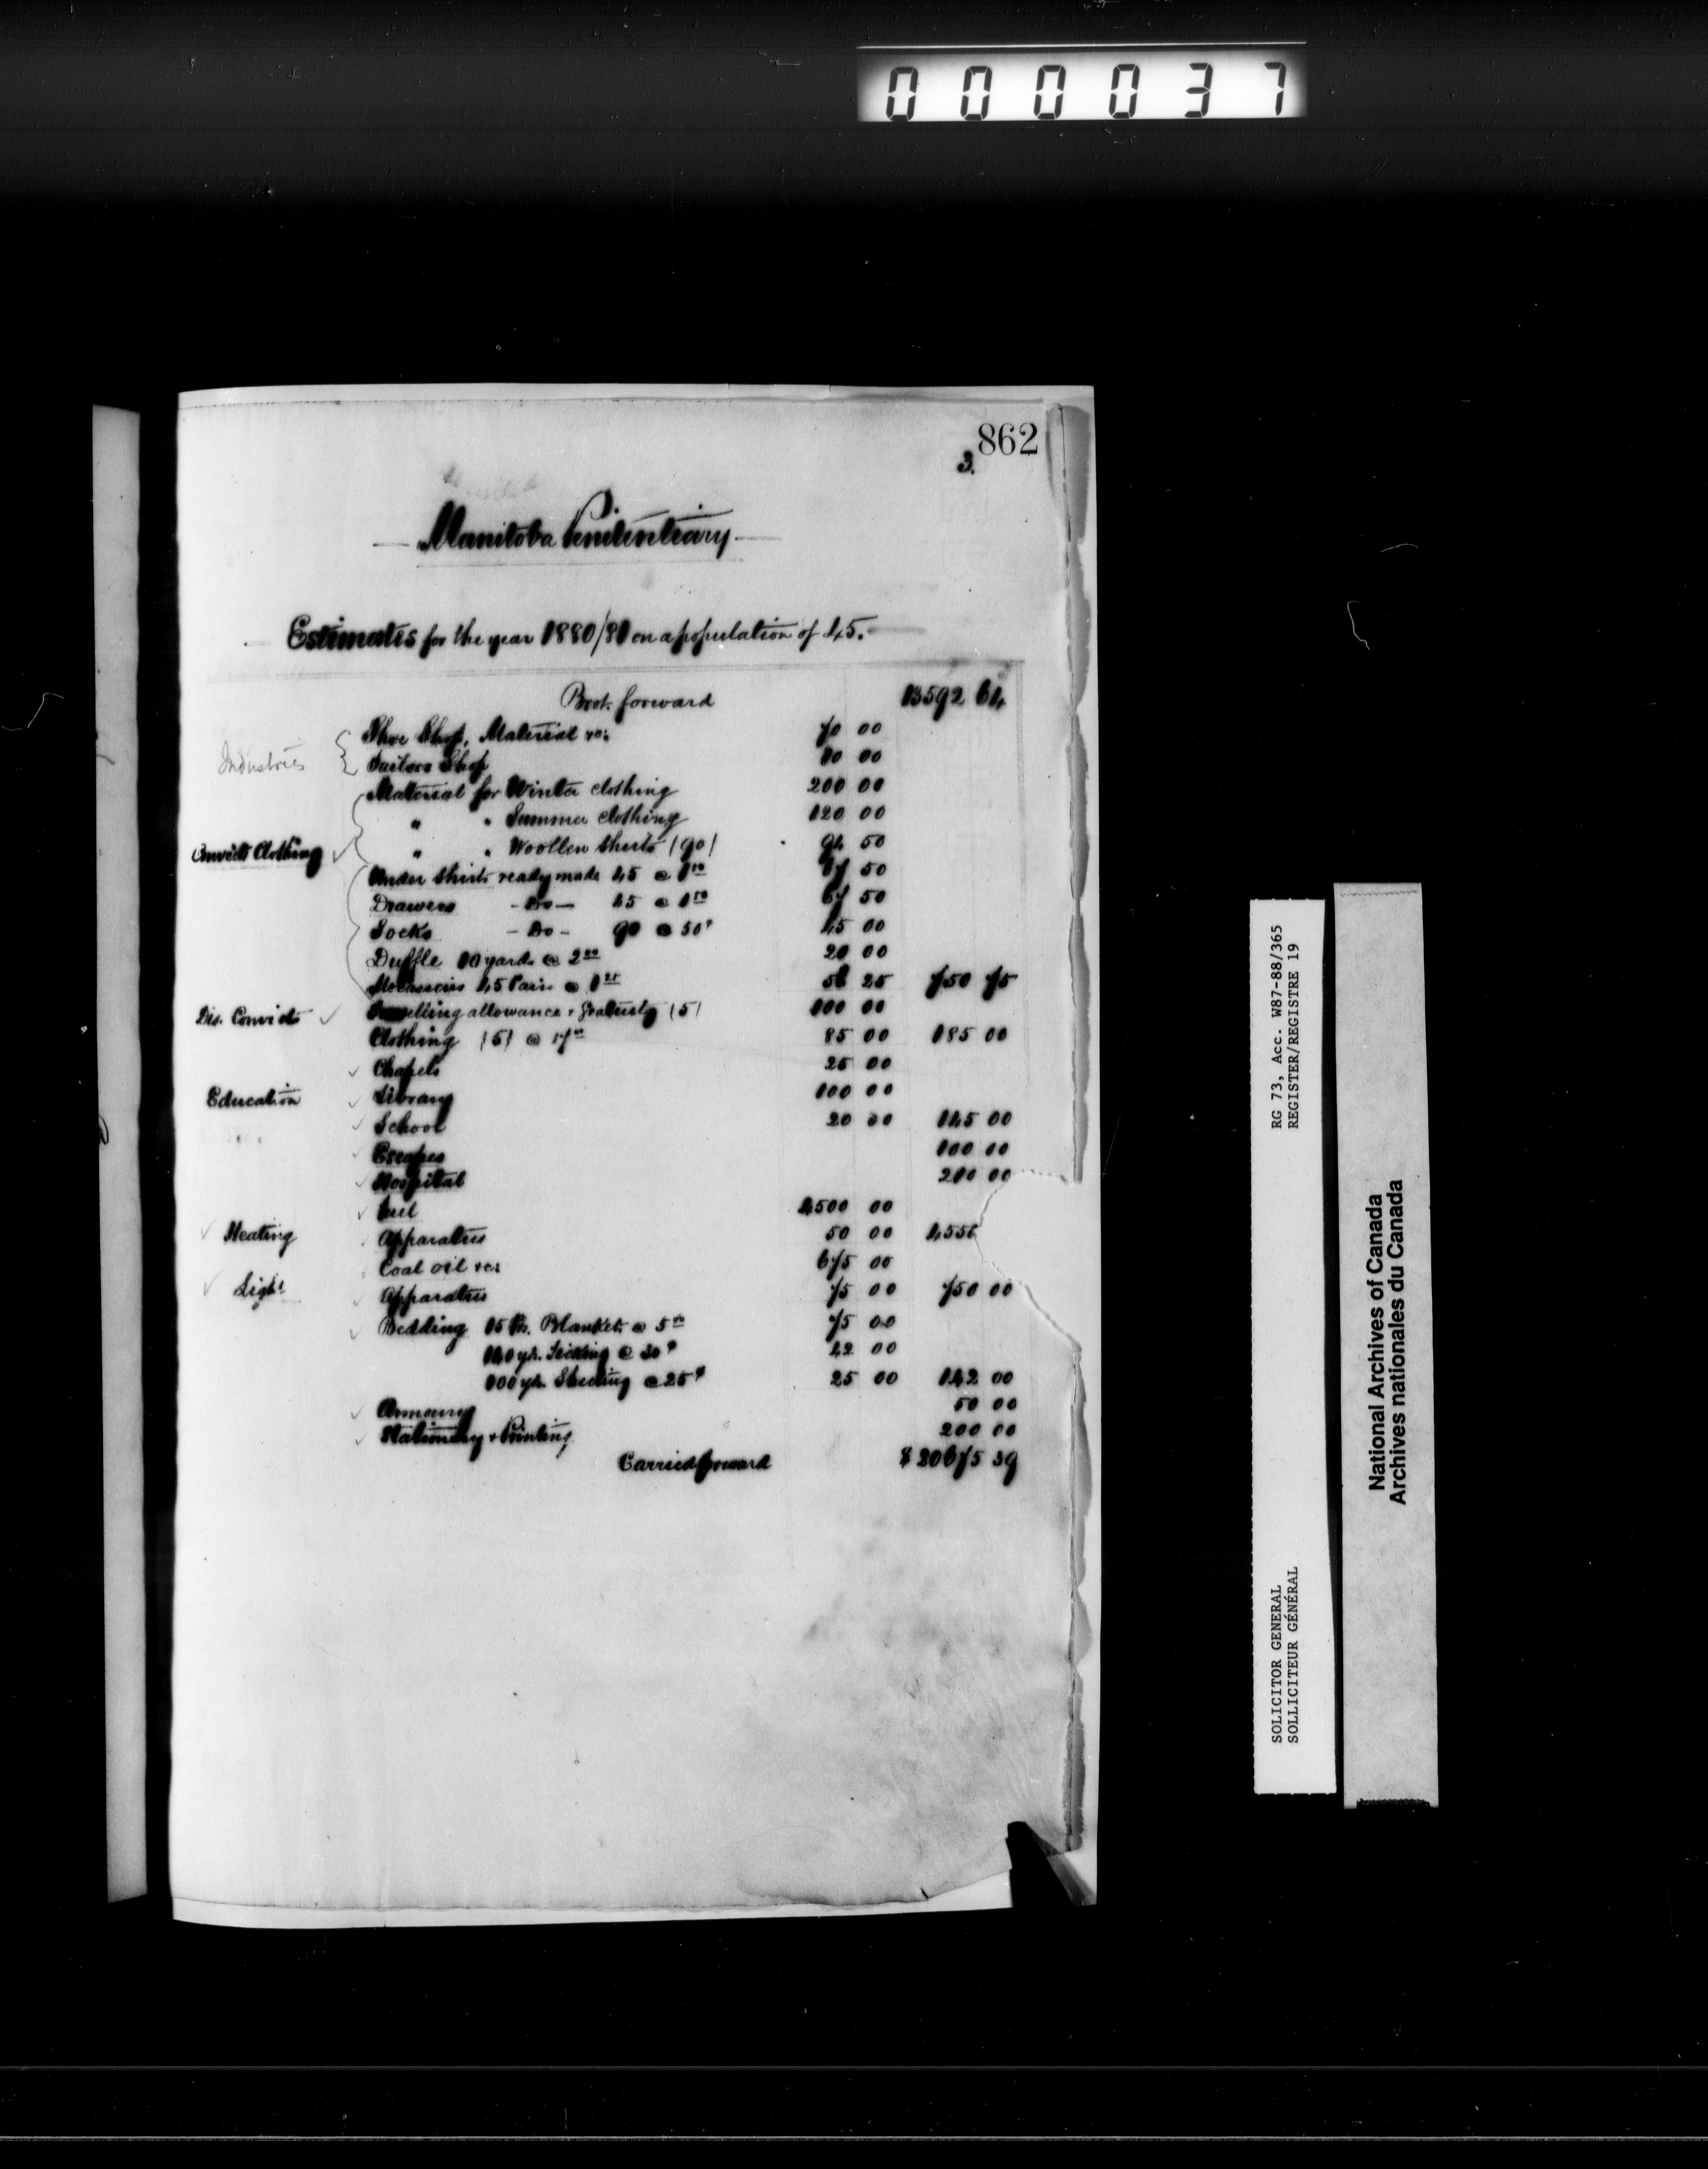 000037
862
3.
Manitoba Penitentiary
Estimates for the year 1880/81 on a population of 45.
Brot. forward 13592 64
Industries Shoe Shop, Material &c. 70 00
Tailors Shop 10 00
Material for Winter clothing 200 00
" " Summer clothing 120 00
Convicts Clothing " " Woollen Shirts (90) 94 50
Under Shirts ready made 45 @ 1 50 67 50
Drawers - Do - 45 @ 1 50 67 50
Socks - Do - 90 @ 50¢ 45 00
Duffle 10 yards @ 2 00 20 00
Moccasins 45 Pairs @ 1 25 56 25 750 75
Dis. Convicts Travelling allowance & Gratuity (5) 100 00
Clothing (5) @ 17 00 85 00 185 00
Chapels 25 00
Education Library 100 00
School 20 00 145 00
Escapes 100 00
Hospital 210 00
Fuel 4500 00
Heating Apparatus 50 00 4550
Coal oil &c. 675 00
Light Apparatus 75 00 750 00
Bedding 15 Prs. Blankets @ 5 00 75 00
140 yds. Ticking @ 30¢ 42 00
100 yds. Sheeting @ 25¢ 25 00 142 00
Armoury 50 00
Stationery & Printing 200 00
Carried forward $ 20675 39
RG 73, Acc. W87-88/365
REGISTER/REGISTRE 19
SOLICITOR GENERAL
SOLLICITEUR GÉNÉRAL
National Archives of Canada
Archives nationales du Canada